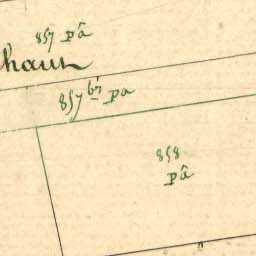 857 pâ
haut
857 bis pa
858
pâ